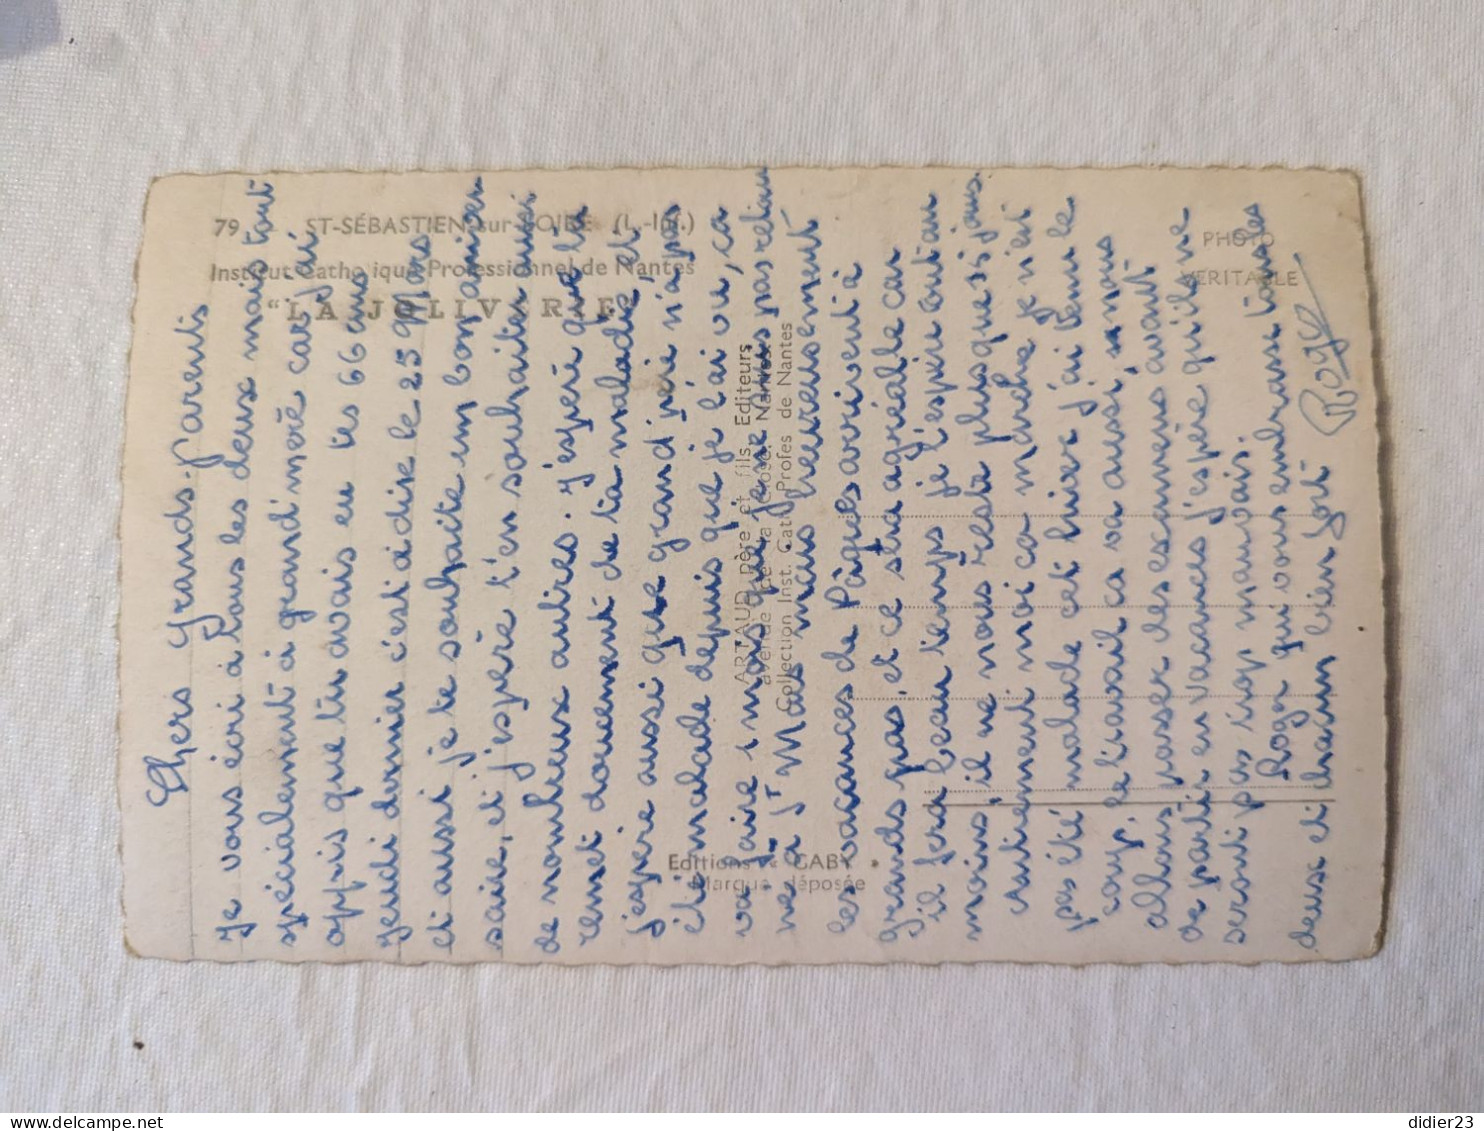 79 ST-SÉBASTIEN-sur-LOIRE (L.-Inf.)
Institut Catholique Professionnel de Nantes
"LA JOLIVERIE"
PHOTO
VERITABLE
ARTAUD Père et fils, Editeurs
avenue de la Close, Nantes
Collection Inst. Cath. Profes de Nantes
Editions « GABY »
Marque déposée
Chers grands-parents
Je vous écri à tous les deux mais tout
spécialement à grand'mère car j'ai
appis que tu avais eu tes 66 ans
jeudi dernier c'est à dire le 25 Mars
et aussi je te souhaite un bon anniver
saire, et j'espère t'en souhaiter ausi
de nombreux autres. J'espère que tu
remet doucement de ta maladie, et
j'espère aussi que grand père n'a pas
été malade depuis que je l'ai vu, ça
va faire 1 mois que je ne suis pas
né à St Mars mais heureusement
les vacances de Pâques arrivent à
grands pas, et ce sera agréable car
il fera beau temps je l'espère outan
moins, il ne nous reste plus que 15 jours
Autrement moi ça marche je n'ei
pas été malade cet hiver j'ai tenu le
coup, le travail ça va aussi, nous
allons passer des escamens avant
de partir en vacances j'espère qu'ils ne
seront pas trop mauvais.
Roger qui vous embrasse tous les
deux et chacun bien fort Roger
didier23